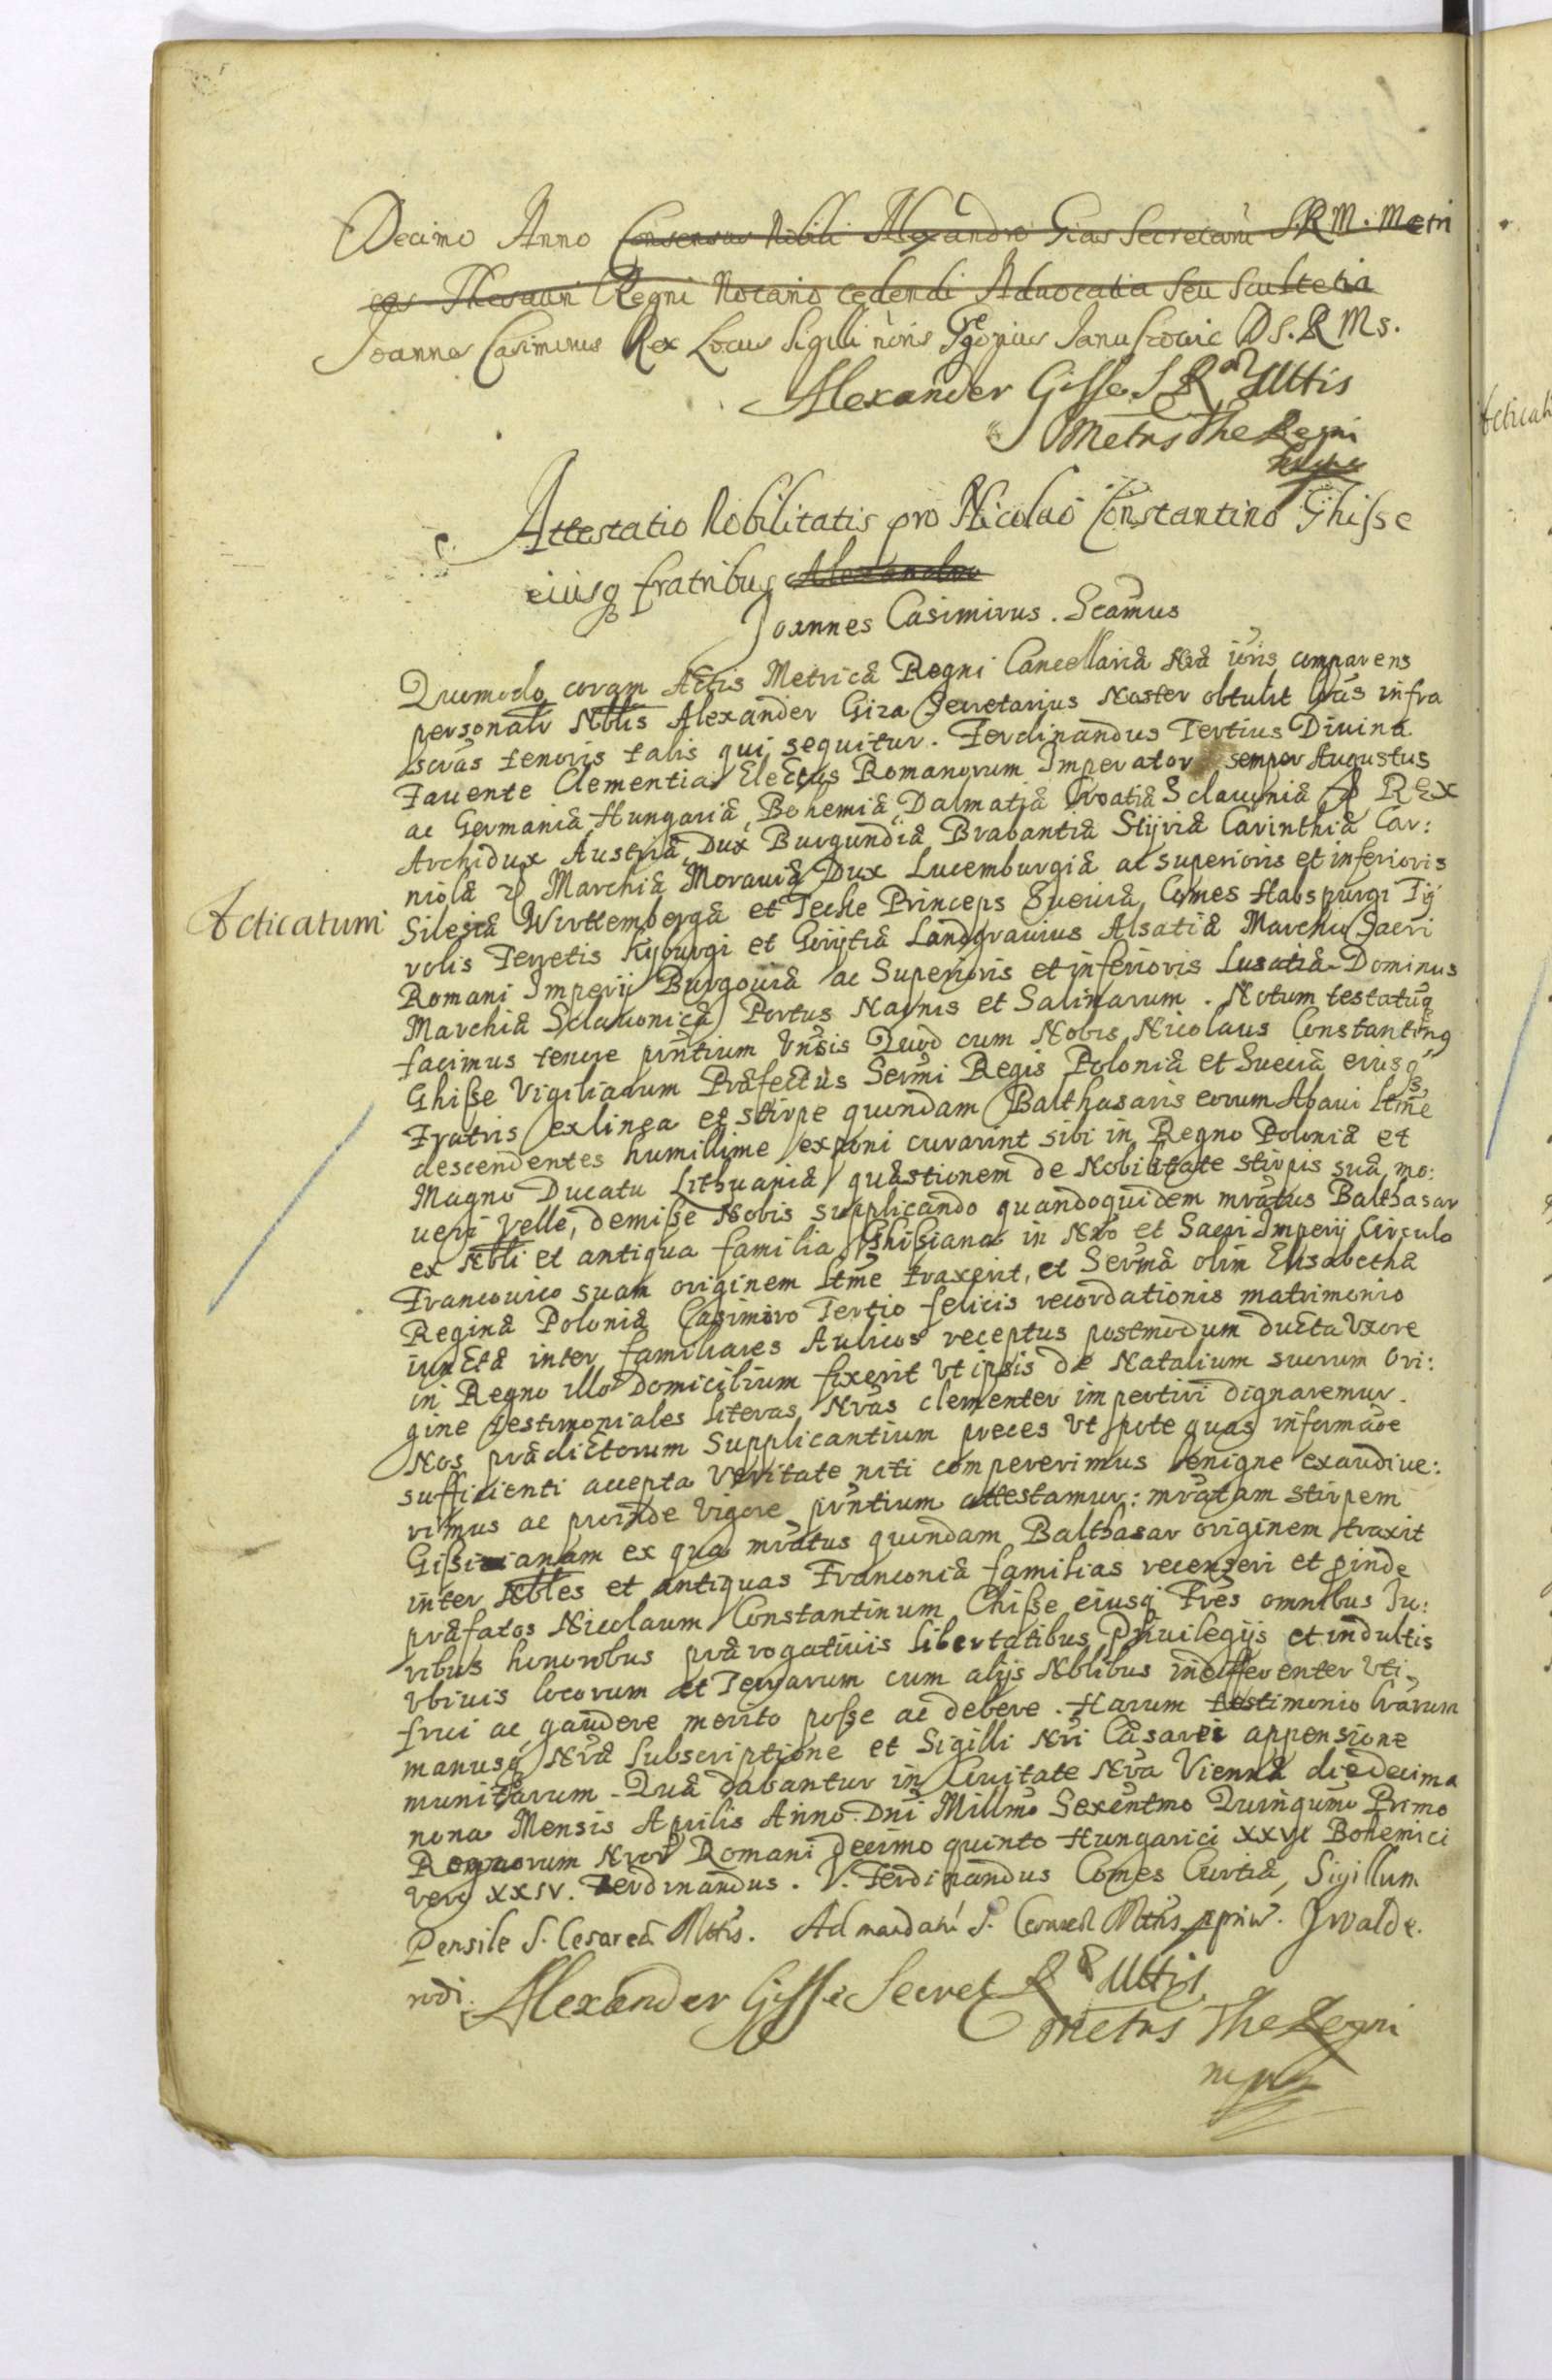 Decimo Anno Consensus Nobili Alexandro Gias Secretario S.R.M. Metri
ces Thesauri Regni Notario cedendi Aduocatia seu Scultetia
Joannes Casimirus Rex Locus Sigilli D S. R Ms.
Alexander Gisse S R Mttis
Metrs The Regni
mpp
Attestatio Nobilitatis pro Nicolao Constantino Ghiſse
eiusq fratribus Alexandro
Joannes Casimirus. Seamus
Quomodo coram Actis Metricæ Regni Cancellariæ Nræ ioris comparens
personalr Nblis Alexander Giza Secretarius Noster obtulit Lras infra
scras tenoris talis qui sequitur. Ferdinandus Tertius Diuina
Fauente Clementia Electus Romanorum Imperator semper Augustus
ac Germaniæ Hungariæ, Bohemiæ, Dalmatiæ Croatiæ Sclauoniæ & REX
Archidux Austriæ, Dux Burgundiæ Brabantiæ Stijriæ Carinthiæ Car:
niolæ & Marchiæ Morauiæ Dux Lucemburgiæ ac superioris et inferioris
Acticatum
Silesiæ Wirtembergæ et Teckæ Princeps Sueuiæ, Comes Habspurgi Tij
rolis Ferretis Kyburgi et Gorijtiæ Landgrauius Alsatiæ Marchio Sacri
Romani Imperij Burgouiæ ac Superioris et inferioris Lusatiæ Dominus
Marchiæ Sclauonicæ Portus Naonis et Salinarum. Notum testatuq
facimus tenore pñtium Vnsis Quod cum Nobis Nicolaus Constantinq
Ghiſse Vigiliarum Præfectus Sermi Regis Poloniæ et Sueciæ eiusq
Fratris ex linea et stirpe quondam Balthasaris eorum Abaui Ltme
descendentes humillime exponi curarint sibi in Regno Poloniæ et
Magno Ducatu Lithuaniæ quæstionem de Nobilitate stirpis suæ mo:
ueri Velle, demiſse Nobis supplicando quandoquidem mratus Balthasar
ex Nbli et antiqua familia Ghiſiana in Nro et Sacri Imperij Circulo
Franconico suam originem Ltme traxerit, et Sermæ olim Elisabethæ
Reginæ Poloniæ Casimiro Tertio felicis recordationis matrimonio
iunctæ inter familiares Aulicos receptus postmodum ducta Vxore
in Regno illo Domicilium fixerit Vt ipsis de Natalium suorum Ori:
gine Testimoniales literas Nras clementer impertiri dignaremur.
Nos prædictorum Supplicantium preces Vt pote quas informaõe
sufficienti accepta Veritate niti compererimus benigne exaudiue:
rimus ac proinde Vigore pñtium attestamur: mratam stirpem
Giſsianam ex qua mratus quondam Balthasar originem traxit
inter Nbles et antiquas Franconiæ familias recenseri et pinde
præfatos Nicolaum Constantinum Ghiſse eiusq Fres omnibus Iu:
ribus honoribus prærogatiuis libertatibus Priuilegijs et indultis
Vbiuis locorum et Terrarum cum alijs Nblibus indifferenter Vti
frui ac gaudere merito poſse ac debere. Harum testimonio Lrarum
manusq Nræ Subscriptione et Sigilli Nri Cæsarei appensione
munitarum. Quæ dabantur in Ciuitate Nra Viennæ die decima
nona Mensis Aprilis Anno Dni Millmo Sexentmo Quinqumo Primo
Regnorum Nror Romani decimo quinto Hungarici XXVI Bohemici
Vero XXIV. Ferdinandus. V. Ferdinandus Comes Curtiæ, Sigillum
Pensile S. Cesareæ Mttis. Ad mandatũ S. Mttis ppriũ. J walde.
rodi. Alexander Gisse Secret R Mttis
Metrs The Regni
mpp